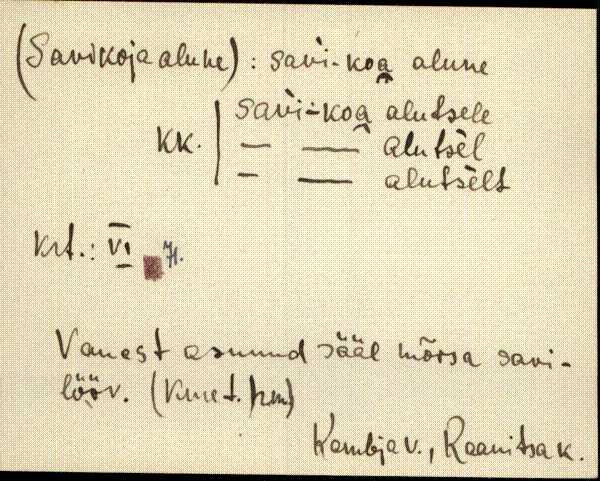 (Savikoja alune) : savi-koa alune
savi-koa alutsele
KK. — — alutsel
— — alutselt
krt. : VI 71.
Vanast asunud sääl mõrsa savi-
lööv. (Kmet. hrm)
Kambja v., Raanitsa k.